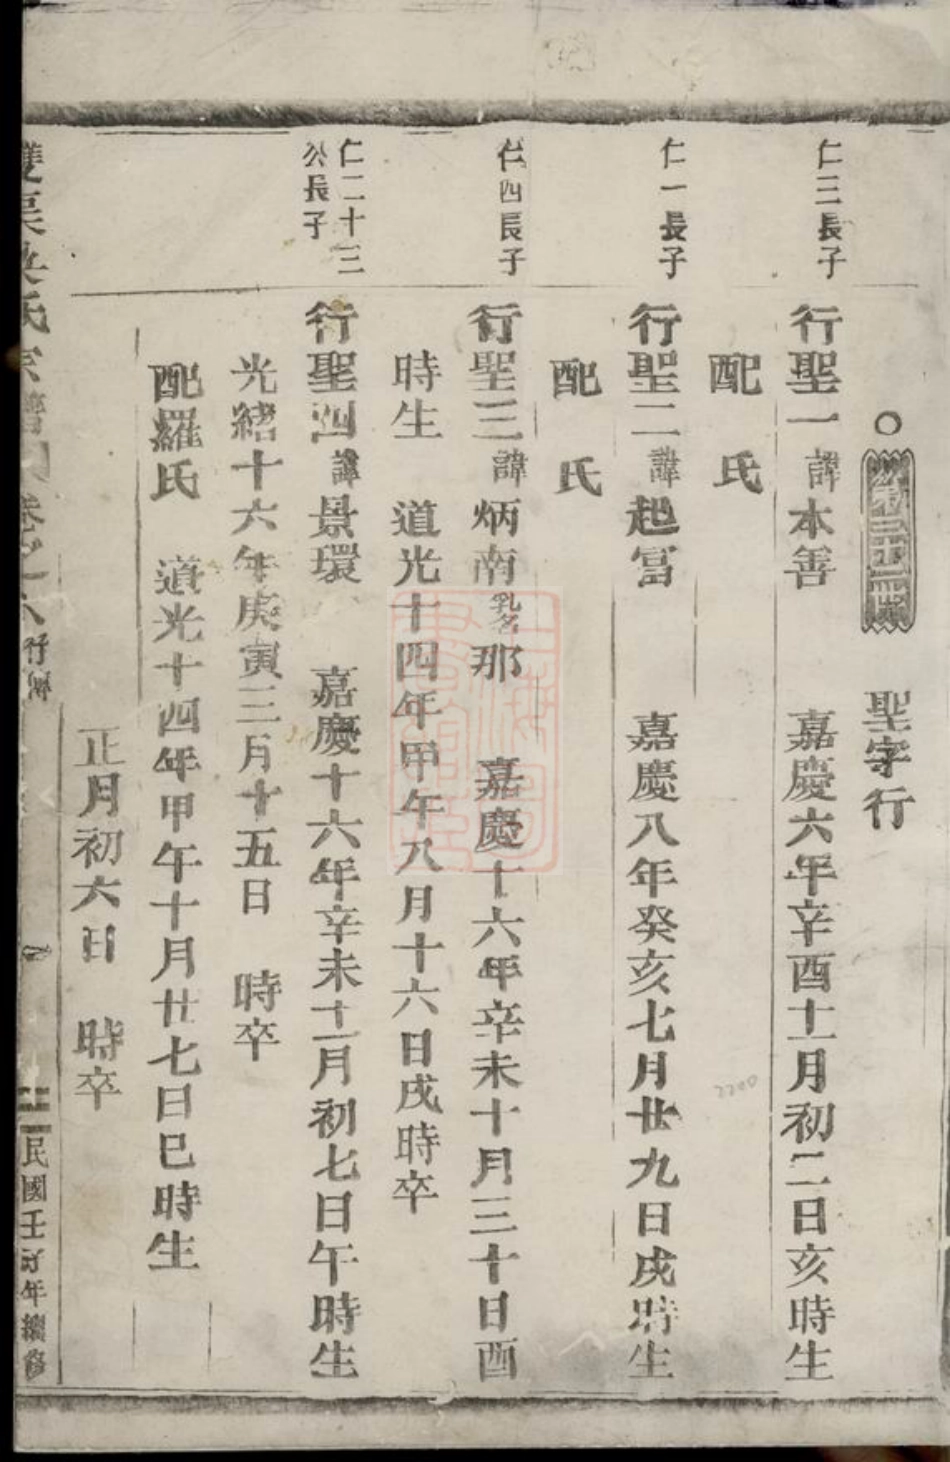 聖字行
仁三長子
行聖一諱本善 嘉慶六年辛酉十一月初二日亥時生
配 氏
仁一長子
行聖二諱起富 嘉慶八年癸亥七月廿九日戌時生
配 氏
仁四長子
行聖三諱炳南乳名那 嘉慶十六年辛未十月三十日酉
時生 道光十四年甲午八月十六日戌時卒
仁二十三
公長子
行聖四諱景環 嘉慶十六年辛未十一月初七日午時生
光緒十六年庚寅三月十五日 時卒
配羅氏 道光十四年甲午十月廿七日巳時生
正月初六日 時卒
氏宗譜 卷之八 行傳
民國壬子年續修